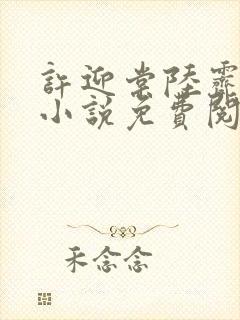 許迎棠陸霽
小說免費閱
禾念念